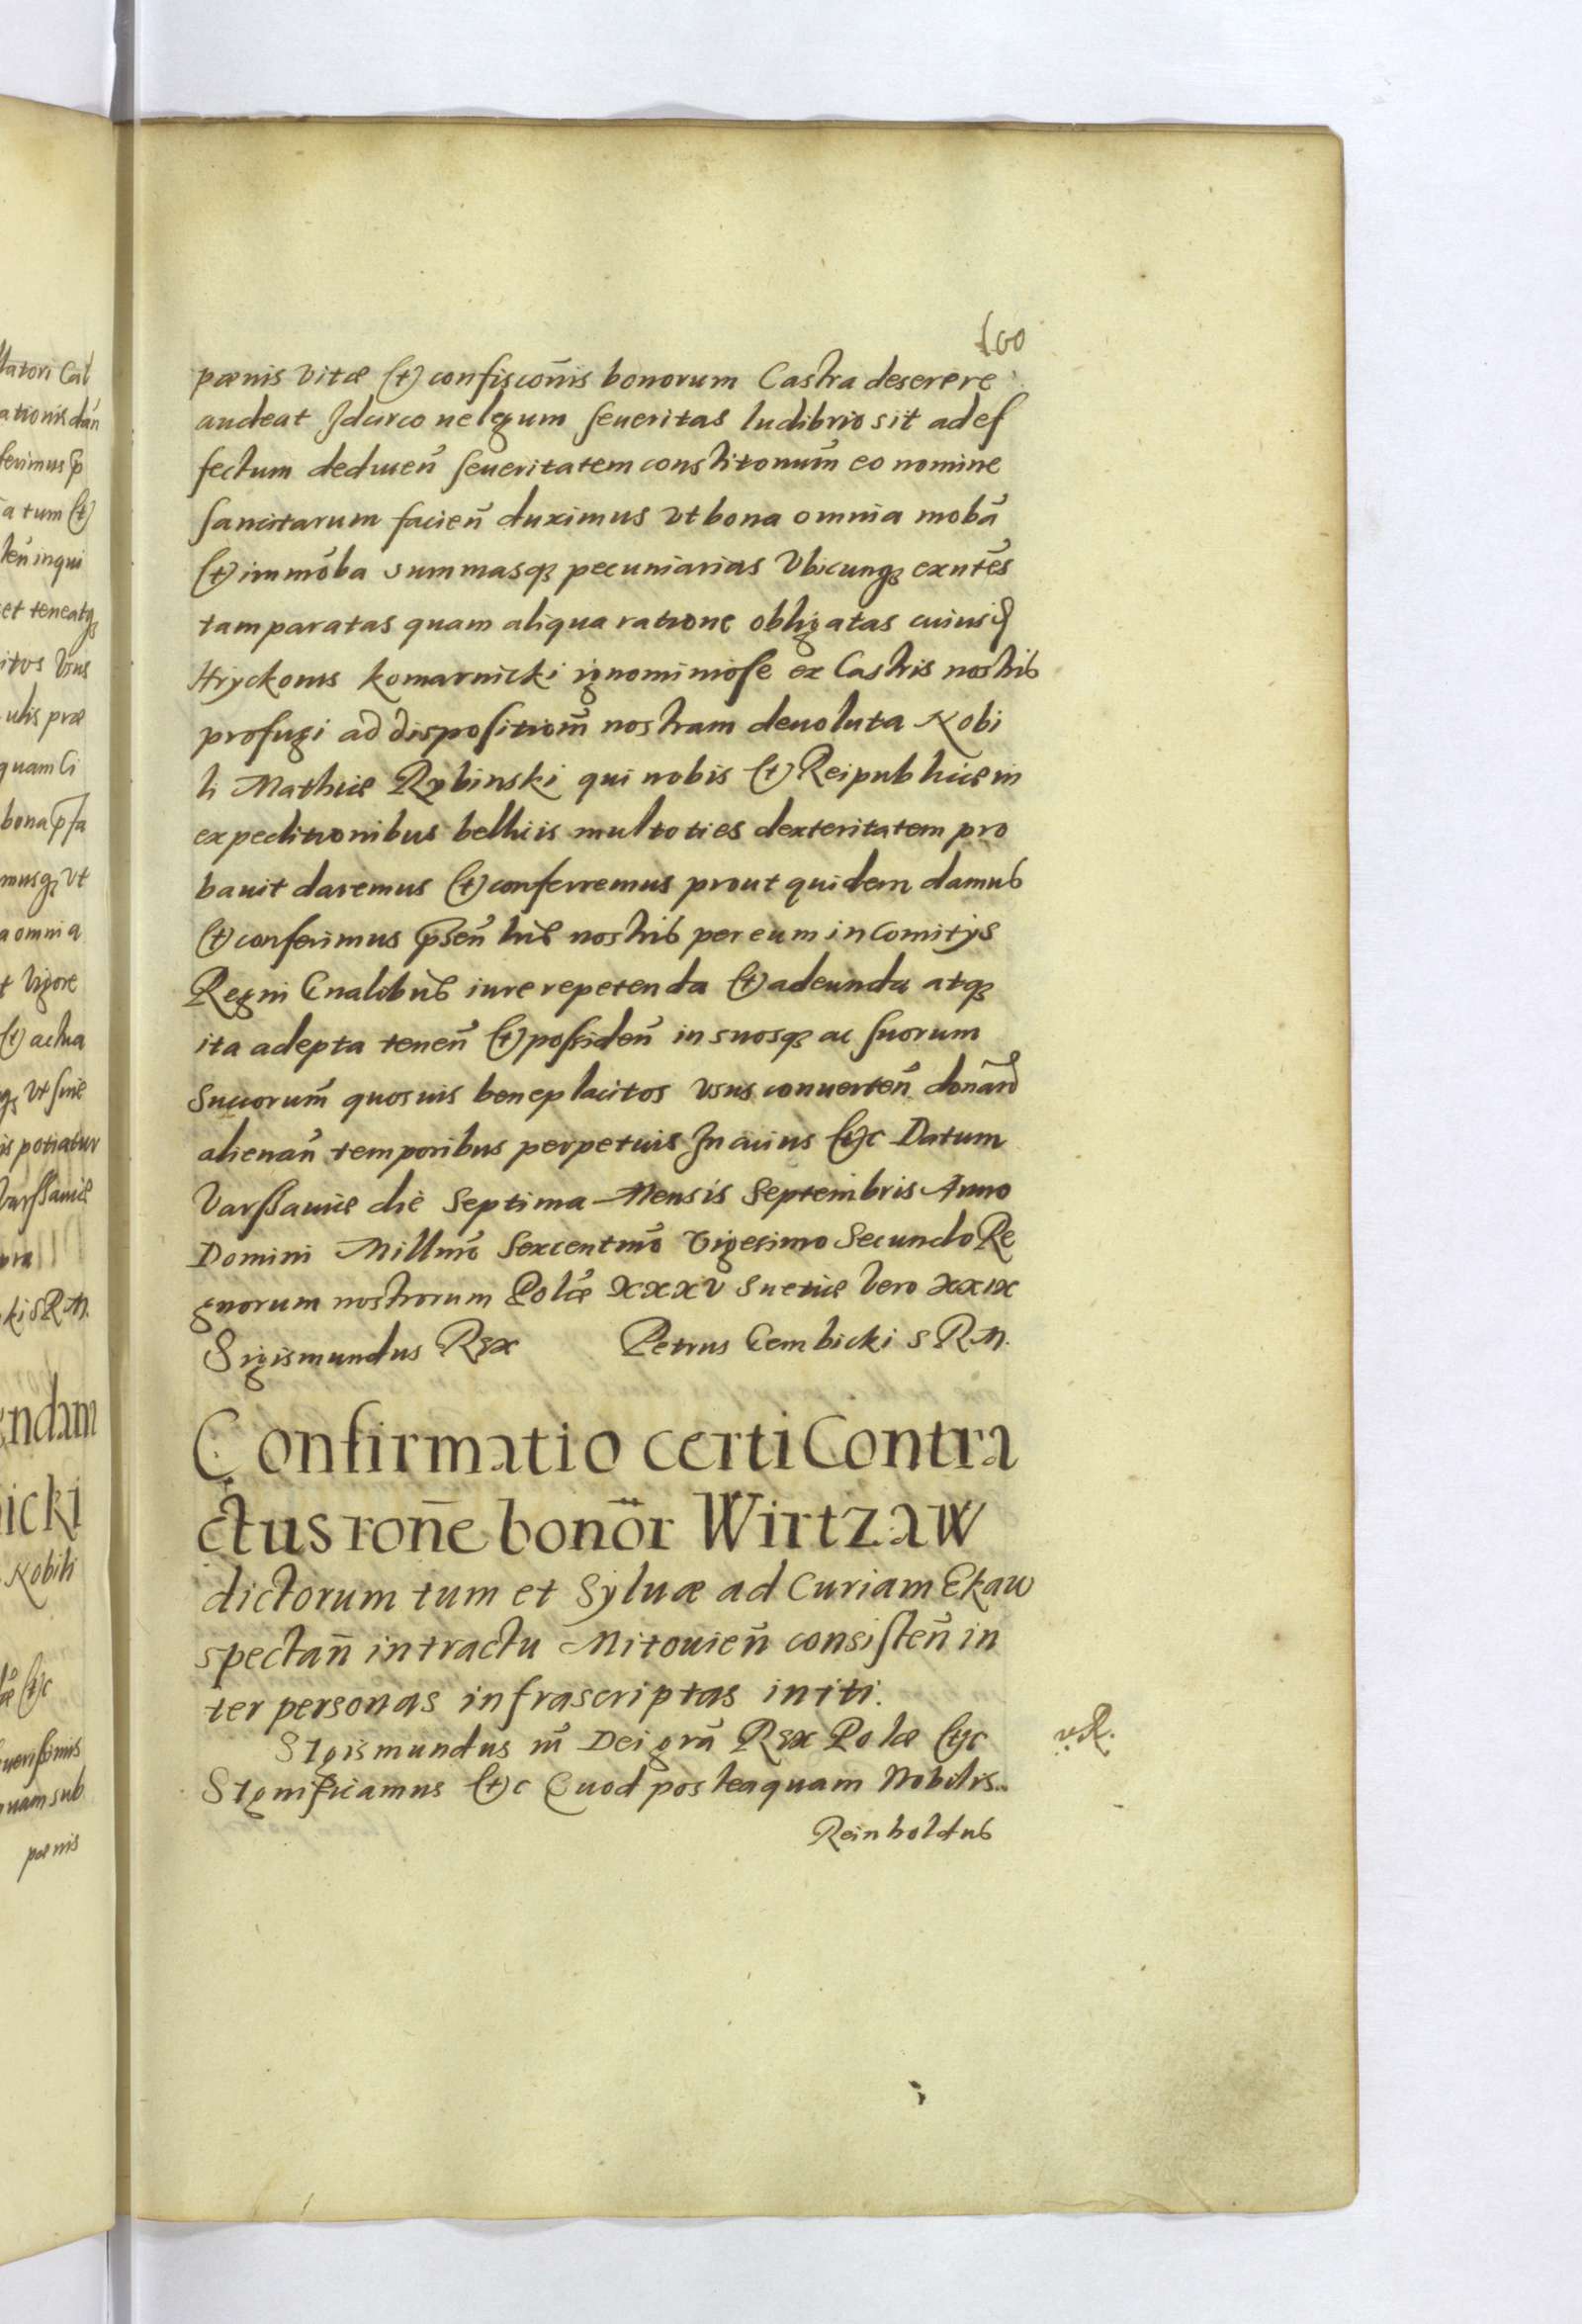 100
pœnis vitæ (et) confiscōnis bonorum Castra deserere
audeat Idcirco ne legum seueritas ludibrio sit ad ef
fectum deducen̄ seueritatem constitonum̄ eo nomine
sancitarum facien̄ duximus vt bona omnia mobā
(et) immōba summasq₃ pecuniarias vbicunq₃ exntēs
tam paratas quam aliqua ratione obligatas cuiusd
Hryckonis komarnicki ignominiose ex Castris nostris
profugi ad dispositiom̄ nostram deuoluta Nobi
li Mathiæ Rybinski qui nobis (et) Reipublicæ in
expeditionibus bellicis multoties dexteritatem pro
bauit daremus (et) conferremus prout quidem damus
(et) conferimus p̄sen̄ lr̄is nostris per eum in Comitijs
Regni Gnalibus iure repetenda (et) adeunda atq₃
ita adepta tenen̄ (et) possiden̄ in suosq₃ ac suorum
Succorum̄ quosuis beneplacitos vsus conuerten̄ donand
alienan̄ temporibus perpetuis In cuius (et)c Datum
Varssauiæ die Septima Mensis Septembris Anno
Domini Millmō Sexcentmō Vigesimo Secundo Re
gnorum nostrorum Polæ XXXV Suetiæ vero XXIX
Sigismundus Rex Petrus Gembicki S R M.
Confirmatio certi Contra
ctus ron̄e bonōr Wirtzaw
dictorum tum et Syluæ ad Curiam Ekaw
spectan̄ in tractu Mitouien̄ consisten̄ in
ter personas infrascriptas initi.
Sigismundus iii Dei grā Rex Polæ (et)c
Significamus (et)c Quod posteaquam Nobilis
Reinholdus
latori Cal
ationis dan̄
ferimus p̄
atum (et)
len̄ inqui
et teneatq₃
itos vius
ulis præ
quam Ci
bona p̄fa
musq₃ vt
a omnia
t vigore
(et) actua
q₃ vt sine
is potiatur
Varssauiæ
pra
ki S R M.
endam
icki
Nobili
æ (et)c
uerissimis
quam sub
pœnis